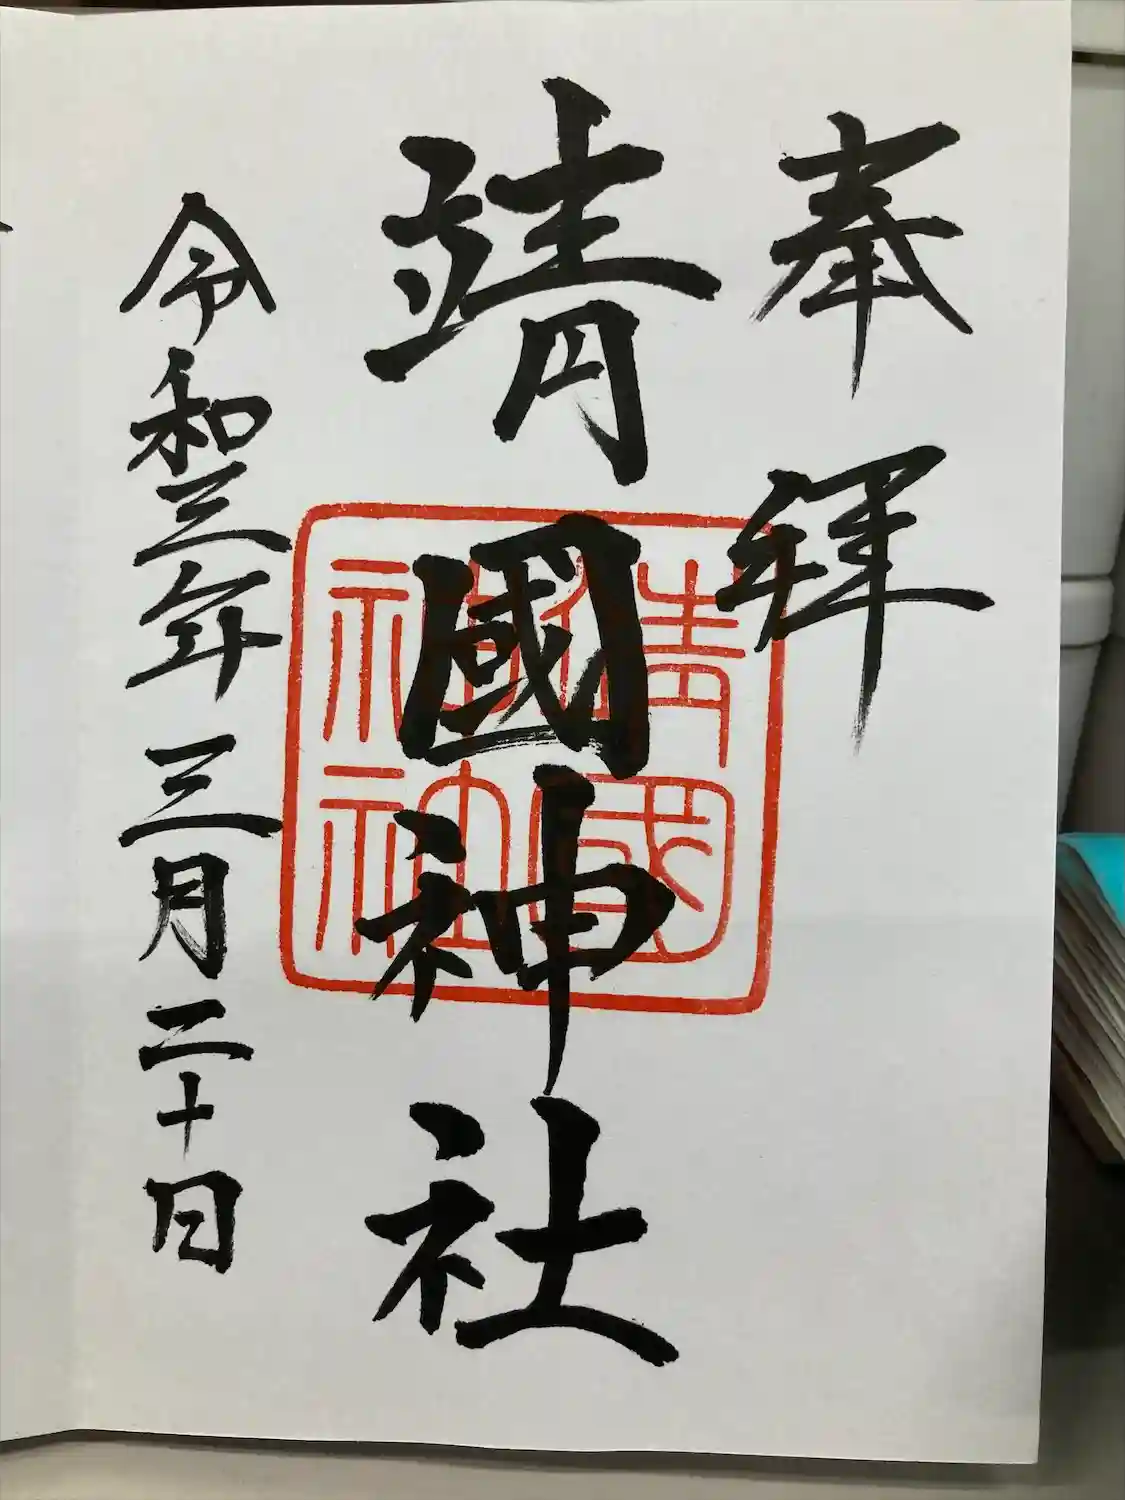 奉拝
靖國神社
靖國
神社
令和三年三月二十日